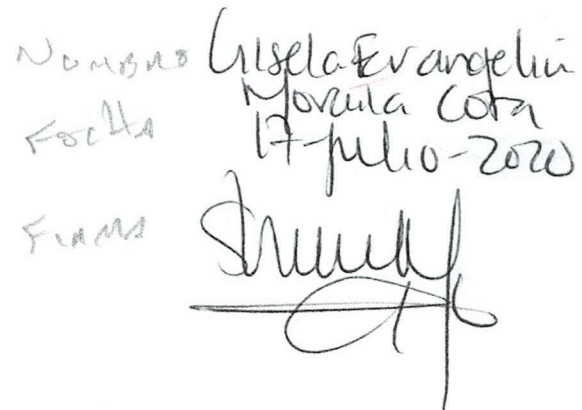 NOMBRE Gisela Evangelin
Cota
FECHA 17-julio-2020
FIRMA